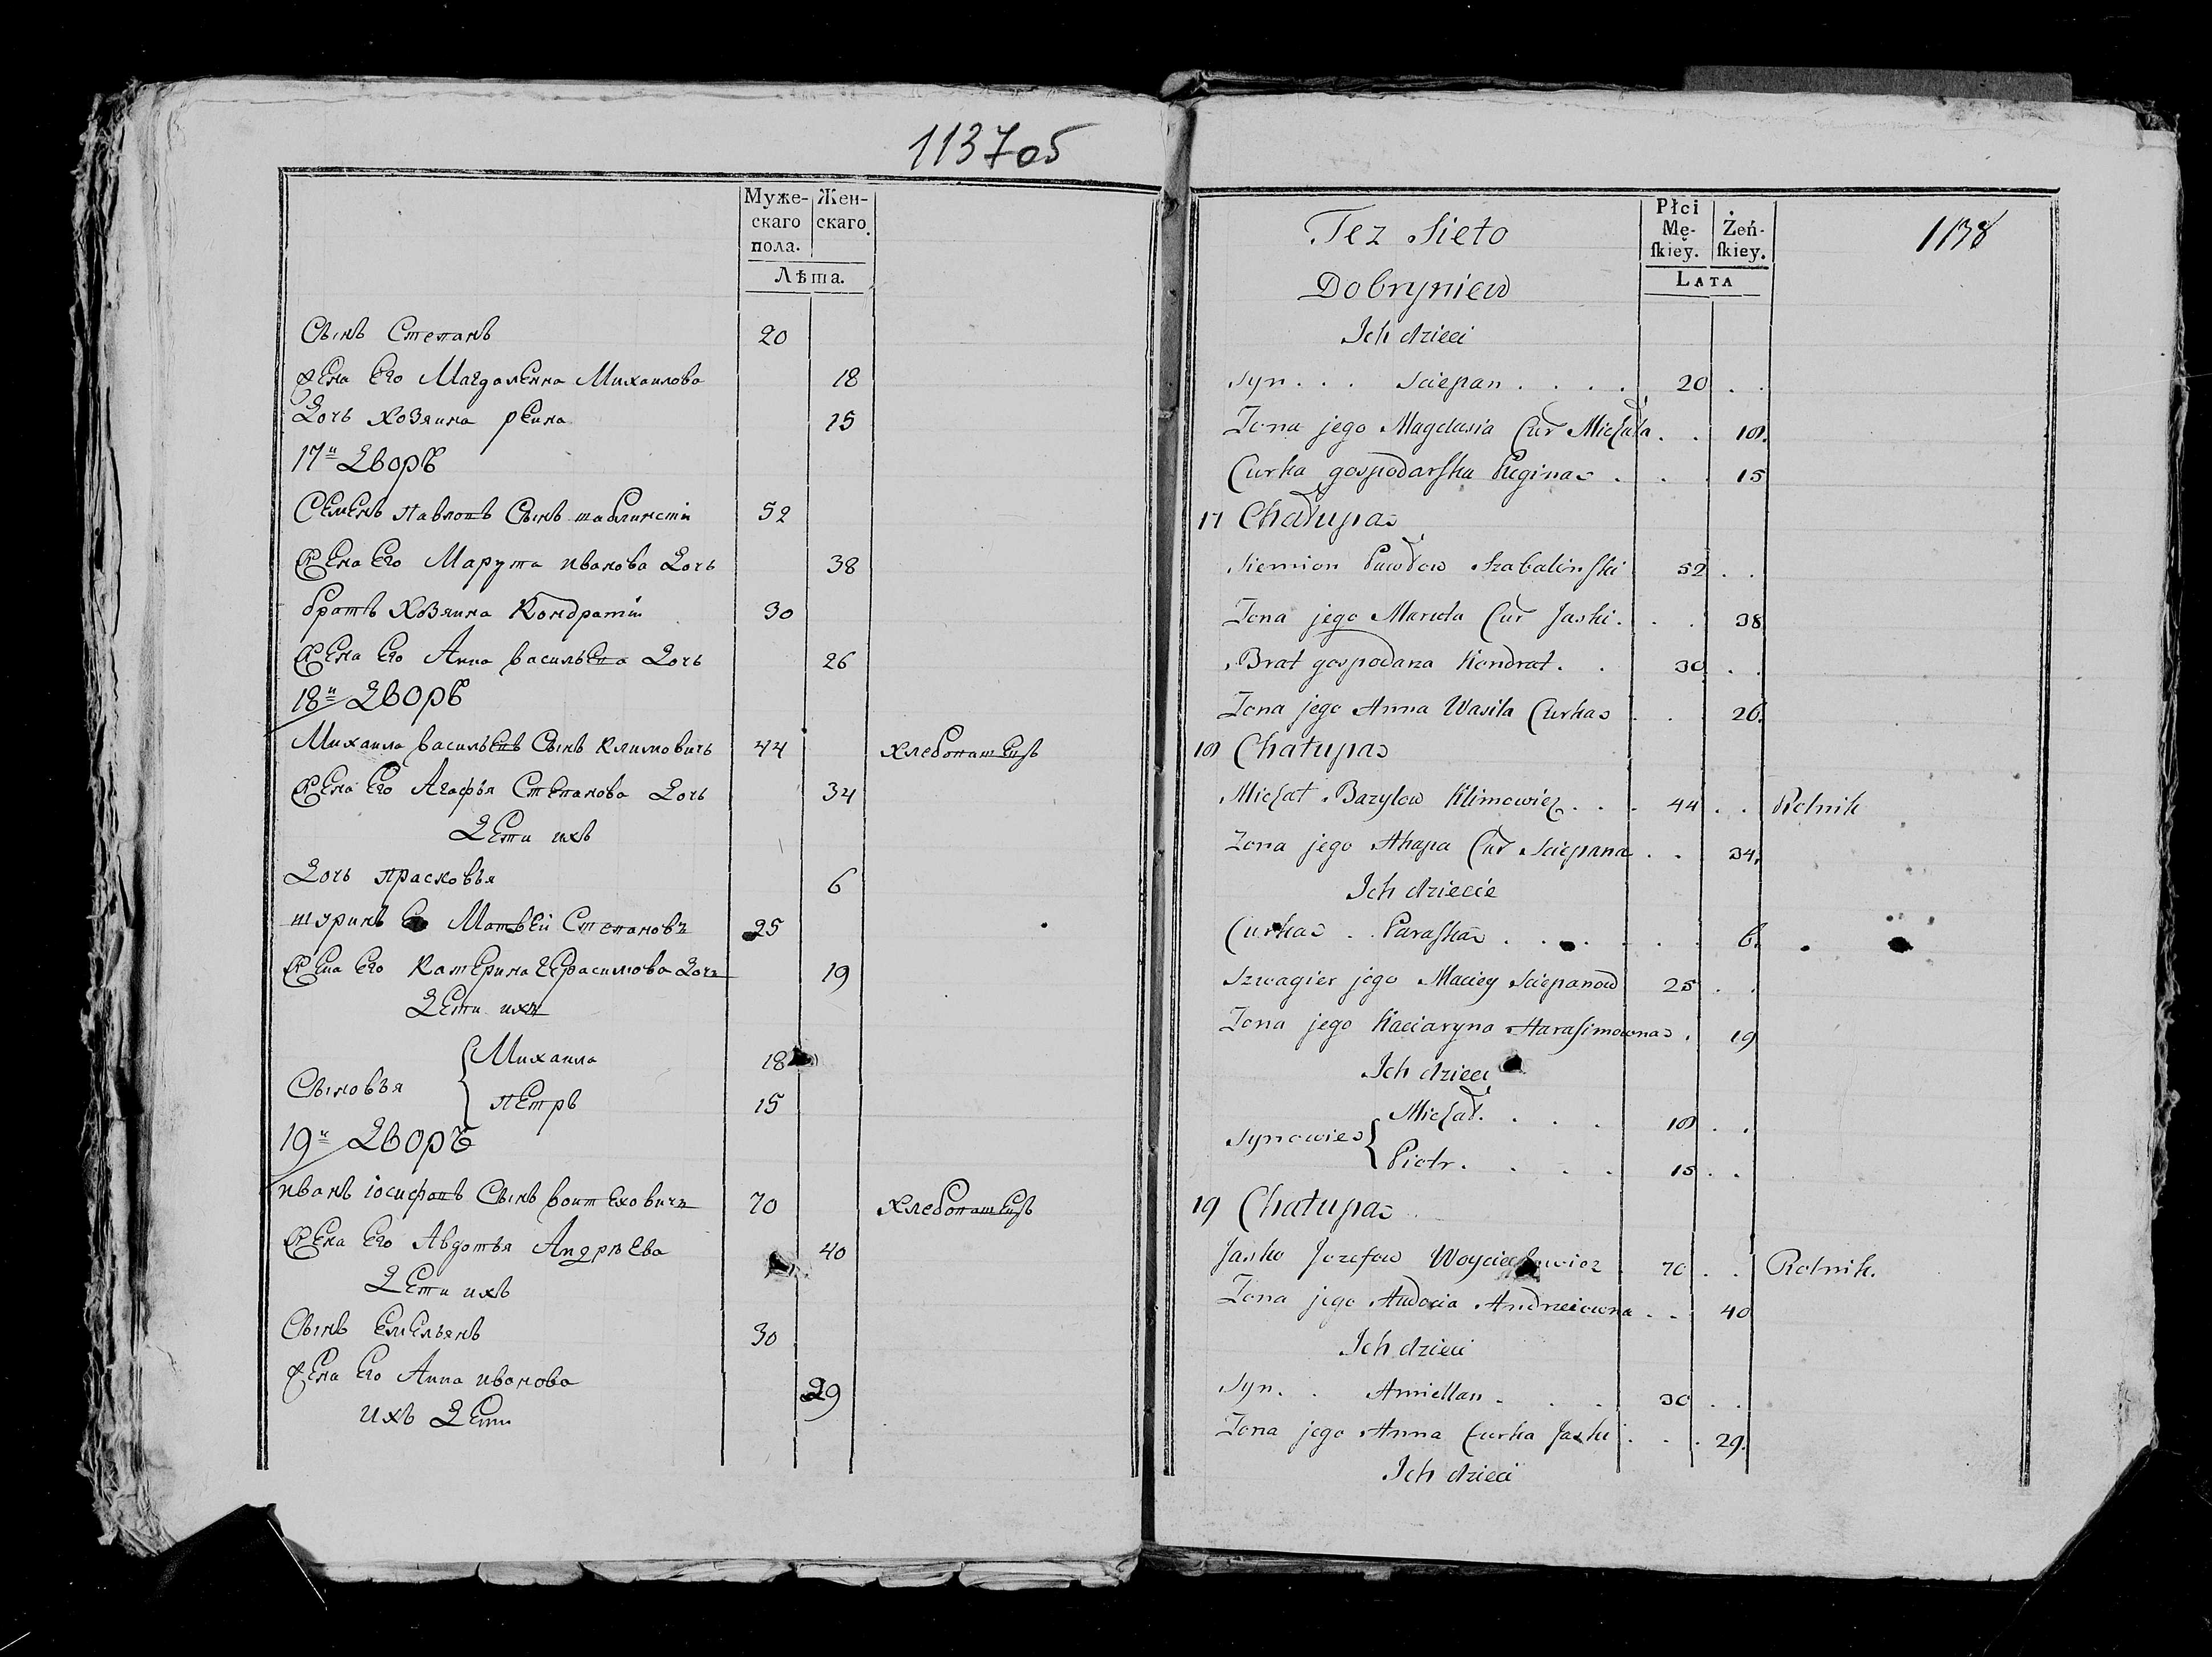 1137 об
Муже-
скаго
пола.
Жен-
скаго.
Лѣта.
Сынъ Степанъ 20
жена Его Магдаленна Михаилова 18
Дочь хозяина реина 15
17й Дворъ
Семенъ павловъ Сынъ шаблинсти 52
жена Его Марута иванова Дочь 38
братъ Хозяина Кондратiи 30
жена Его Анна васильева Дочь 26
18й Дворъ
Михаила васильевъ Сынъ климовичь 44 хлебопашецъ
жена Его Агафья Степанова Дочь 34
Дети ихъ
Дочь прасковья 6
шуринъ Его Матвеи Степановъ 25
жена Его Катерина Герасимова Дочь 19
Дети ихъ
Сыновья { Михаила 18
петръ 15
19й Дворъ
иванъ iосифовъ Сынъ воитеховичъ 70 хлебопашецъ
жена Его Авдотья Андреева 40
Дети ихъ
Сынъ Емельянъ 30
жена Его Анна иванова 29
Ихъ Дети
Tez Sieło
Płci
Mę-
ſkiey.
Żeń-
ſkiey.
1138
Lata
Dobryniew
Ich dzieci
Syn . . . Sciepan . . . . 20 . .
Zona jego Magdusia Cur Michała . . 18.
Curka gospodarska Regina . . . 15
17 Chałupa
Siemion Pawłow Szabalinski 52 . .
Zona jego Maruta Cur Jaski . . . 38
Brat gospodarza Kondrat . . 30 . .
Zona jego Anna Wasila Curka . . . 26.
18 Chałupa
Michał Bazylow Klimowicz . . . 44 . . Rolnik
Zona jego Ahapa Cur Sciepana . . 34.
Ich dziecie
Curka . . Paraska . . . . . . . 6.
Szwagier jego Maciey Sciepanow 25 . .
Zona jego Kaciaryna Harasimowna . 19
Ich dzieci
Synowie { Michał . . . . 18 . .
Piotr . . . . 15 . .
19 Chałupa
Jasko Jozefow Woyciechowicz 70 . . Rolnik.
Zona jego Audocia Andrzeiowna . . 40
Ich dzieci
Syn . . Amiellan . . . 30 . .
Zona jego Anna Curka Jaski . . . 29.
Ich dzieci